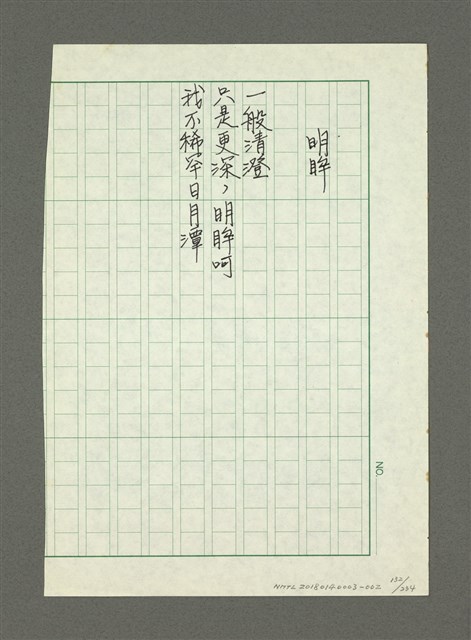 明眸
一般清澄
只是更深，明眸呵
我不稀罕日月潭
NO.
NMTL20180140003-002
132/234